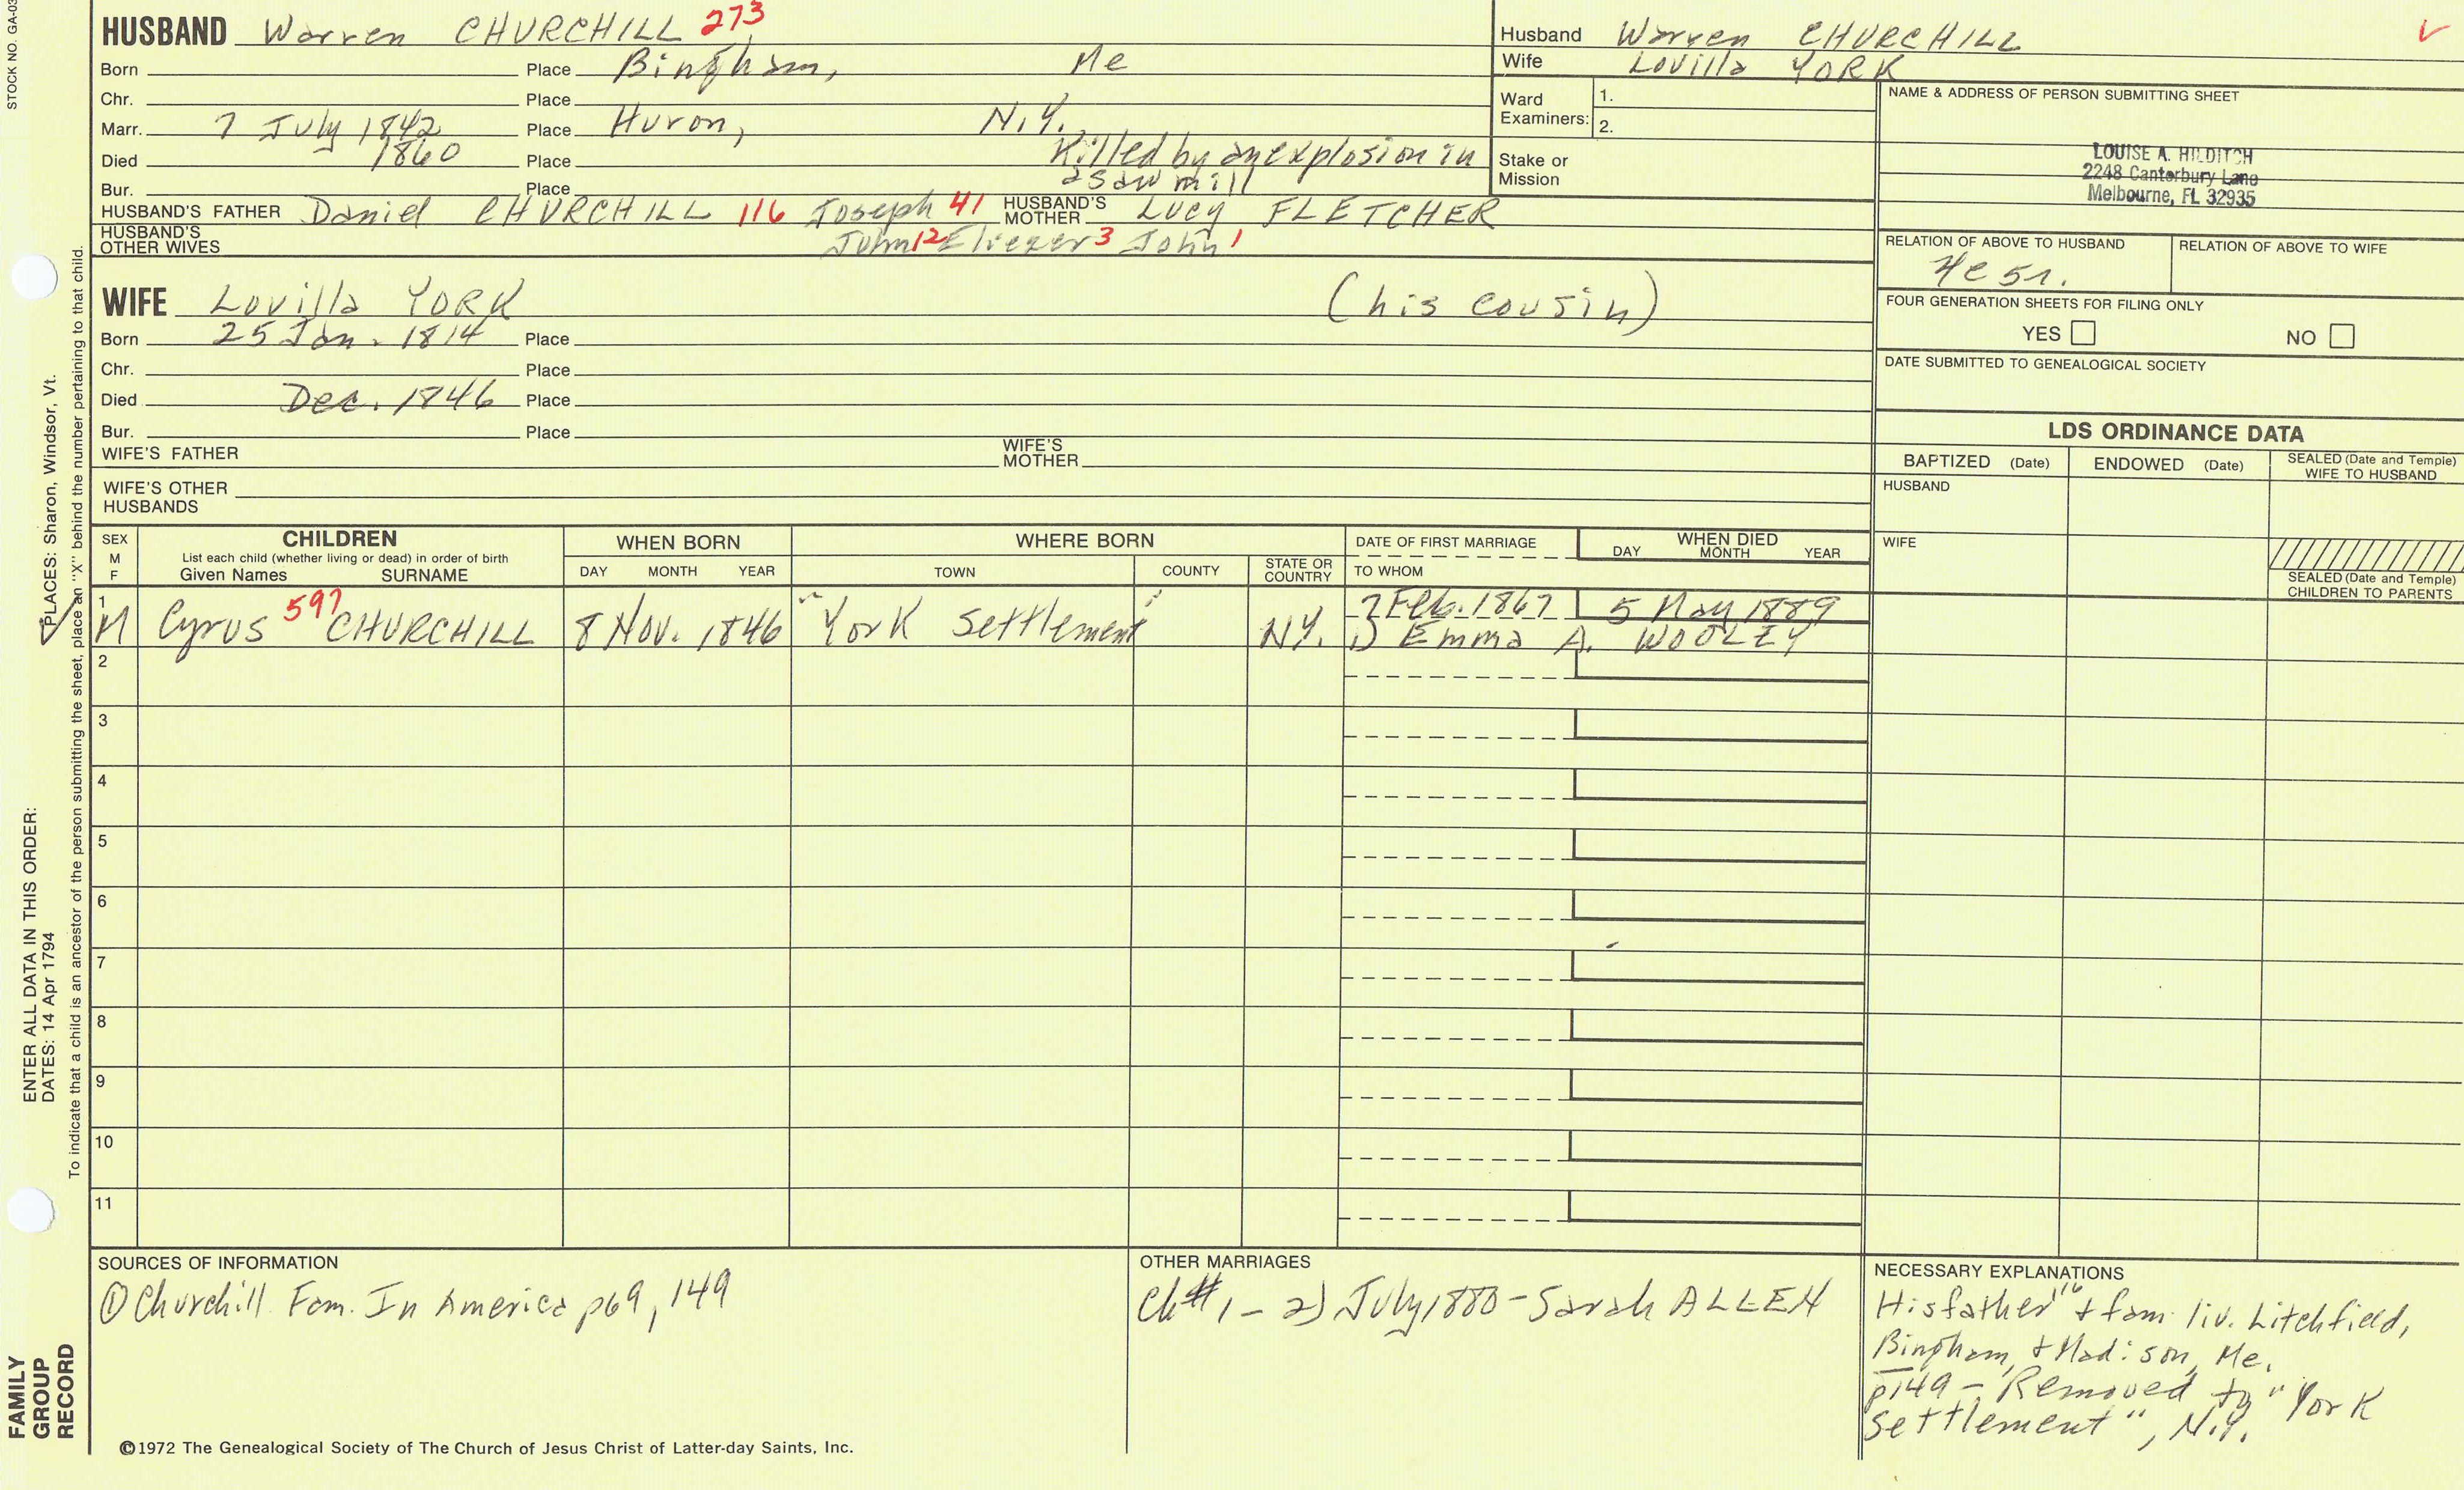 STOCK NO. GA-03
HUSBAND Warren CHURCHILL 273
Born Place Bingham, Me
Chr. Place
Marr. 7 July 1842 Place Huron, N.Y.
Died 1860 Place Killed by an explosion in
a saw mill
Bur. Place
HUSBAND'S FATHER Daniel CHURCHILL 116 Joseph 41 HUSBAND'S MOTHER Lucy FLETCHER
HUSBAND'S OTHER WIVES John 12 Eliezer 3 John 1
Husband Warren CHURCHILL
Wife Lovilla YORK
Ward Examiners: 1.
2.
Stake or Mission
NAME & ADDRESS OF PERSON SUBMITTING SHEET
LOUISE A. HILDITCH
2248 Canterbury Lane
Melbourne, FL 32935
RELATION OF ABOVE TO HUSBAND RELATION OF ABOVE TO WIFE
FOUR GENERATION SHEETS FOR FILING ONLY
YES NO
DATE SUBMITTED TO GENEALOGICAL SOCIETY
WIFE Lovilla YORK (his cousin)
Born 25 Jan. 1814 Place
Chr. Place
Died Dec. 1846 Place
Bur. Place
WIFE'S FATHER WIFE'S MOTHER
WIFE'S OTHER HUSBANDS
LDS ORDINANCE DATA
BAPTIZED (Date) ENDOWED (Date) SEALED (Date and Temple) WIFE TO HUSBAND
HUSBAND
WIFE
SEALED (Date and Temple) CHILDREN TO PARENTS
SEX M F
CHILDREN
List each child (whether living or dead) in order of birth
Given Names SURNAME
WHEN BORN
DAY MONTH YEAR
WHERE BORN
TOWN COUNTY STATE OR COUNTRY
DATE OF FIRST MARRIAGE
TO WHOM
WHEN DIED
DAY MONTH YEAR
1 M Cyrus 597 CHURCHILL 8 Nov. 1846 "York Settlement" N.Y. 7 Feb. 1867 5 May 1889
1) Emma A. WOOLEY
2
3
4
5
6
7
8
9
10
11
SOURCES OF INFORMATION
① Churchill Fam. In America p69, 149
OTHER MARRIAGES
Ch #1 - 2) July 1880 - Sarah ALLEN
NECESSARY EXPLANATIONS
His father 116 + fam. liv. Litchfield,
Bingham, + Madison, Me.
p149 - Removed to "York
Settlement", N.Y.
©1972 The Genealogical Society of The Church of Jesus Christ of Latter-day Saints, Inc.
ENTER ALL DATA IN THIS ORDER:
PLACES: Sharon, Windsor, Vt.
DATES: 14 Apr 1794
To indicate that a child is an ancestor of the person submitting the sheet, place an "X" behind the number pertaining to that child.
FAMILY
GROUP
RECORD